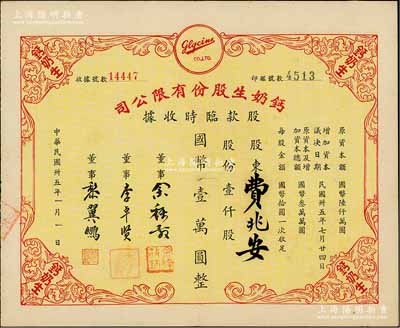 上海陽明拍賣
Glycine
CO.,LTD.
收據號數 14447
印鑑號數 4513
司公限有份股生奶鈣
據收時臨款股
原資本額 國幣陸仟萬圓
增加資本
議決日期 民國卅五年七月廿四日
原資本及增
加資本總額 國幣叁萬萬圓
每股金額 國幣拾圓一次收足
股東 費兆安
股份壹仟股
國幣壹萬圓整
董事
董事 李平賢
董事 黎翼鵬
中華民國卅五年一月一日
鈣奶生
鈣奶生
鈣奶生
鈣奶生